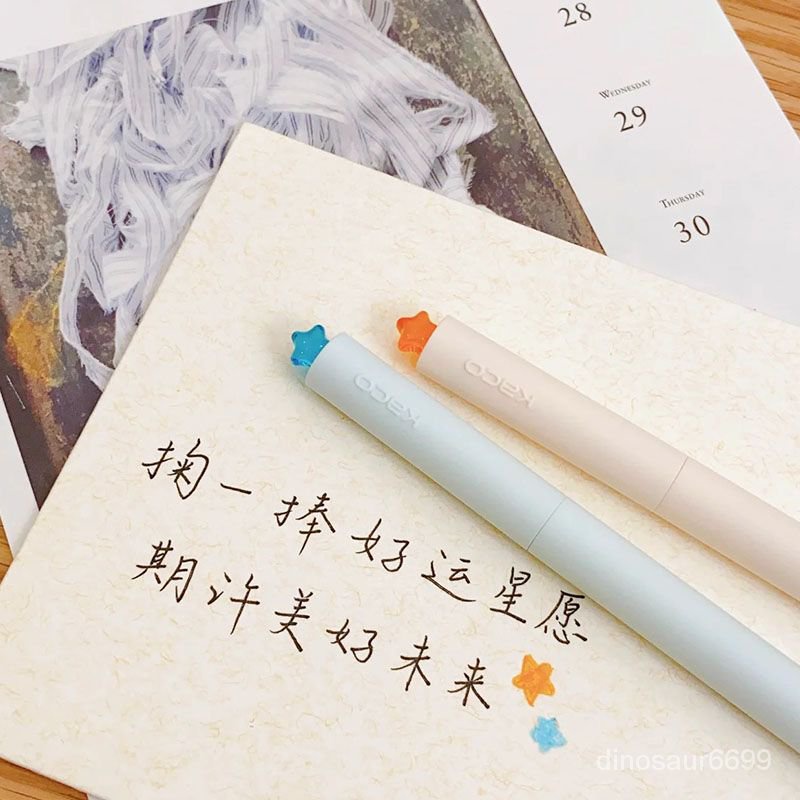 28
WEDNESDAY
29
THURSDAY
30
kaco
kaco
掬一捧好运星愿
期许美好未来
dinosaur6699